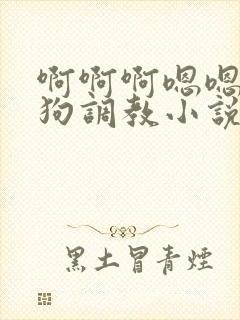 啊啊啊嗯嗯
狗調教小說
黑土冒青煙